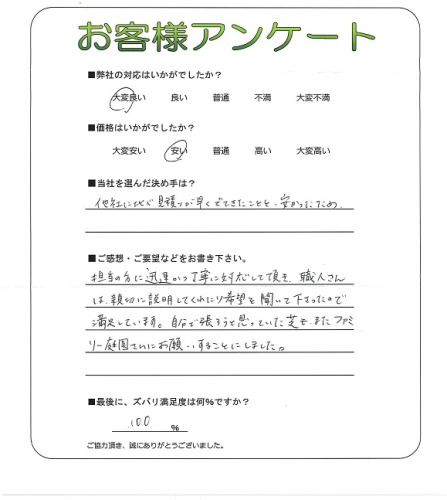 お客様アンケート
■弊社の対応はいかがでしたか？
大変良い 良い 普通 不満 大変不満
■価格はいかがでしたか？
大変安い 安い 普通 高い 大変高い
■当社を選んだ決め手は？
他社に比べ見積りが早くでてきたことと、安かったため。
■ご感想・ご要望などをお書き下さい。
担当の方に迅速かつ丁寧に対応して頂き、職人さん
は、親切に説明してくれたり希望を聞いて下さったので
満足しています。自分で張ろうと思っていた芝も、またファミ
リー庭園さんにお願いすることにしました。
■最後に、ズバリ満足度は何％ですか？
100 ％
ご協力頂き、誠にありがとうございました。